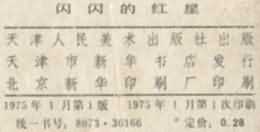 闪闪的红星
天津人民美术出版社出版
天津市新华书店发行
北京新华印刷厂印刷
1975年1月第1版 1975年1月第1次印刷
统一书号：8073·30166 定价：0.28